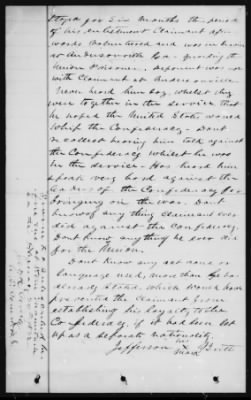 stayed for six months the period
of his enlistment Claimant after-
wards volunteered and was on duty
at Andersonville Ga. guarding the
Union Prisoners. Deponent was
with Claimant at Andersonville
Never heard him say, whilst they
were together in the service that
he hoped the United States would
Whip the Confederacy. Dont
recollect hearing him talk against
the Confederacy whilst he was
in the service. Has heard him
speak very hard against the
leaders of the Confederacy for
bringing on the war. Dont
know of any thing claimant ever
did against the Confederacy.
Dont know anything he ever did
for the Union.
Dont know any act done or
language used, more than
already stated, which would have
prevented the Claimant from
establishing his loyalty to the
Confederacy if it had been set
up as a separate nationality.
his
Jefferson X Britt
mark